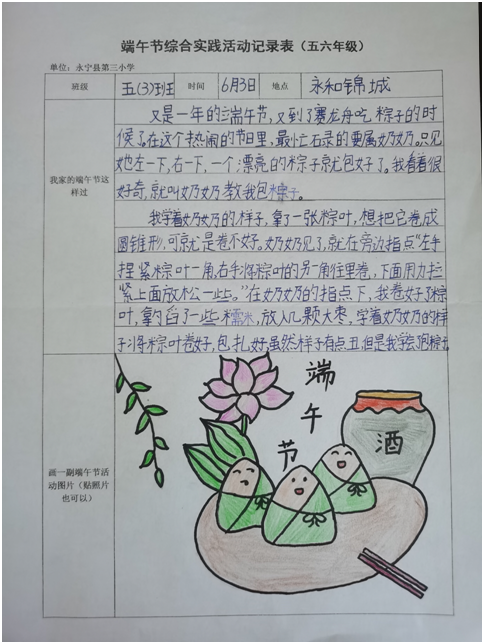 端午节综合实践活动记录表（五六年级）
单位：永宁县第三小学
班级 五(3)班 时间 6月3日 地点 永和锦城
我家的端午节这样过
又是一年的端午节,又到了赛龙舟吃粽子的时
候了。在这个热闹的节日里,最忙碌的要属奶奶。只见
她左一下,右一下,一个漂亮的粽子就包好了。我看着很
好奇,就叫奶奶教我包粽子。
我学着奶奶的样子,拿了一张粽叶,想把它卷成
圆锥形,可就是卷不好。奶奶见了,就在旁边指点“左手
捏紧粽叶一角,右手将粽叶的另一角往里卷,下面用力拉
紧上面放松一些。”在奶奶的指点下,我卷好了粽
叶,拿勺舀了一些糯米,放入几颗大枣,学着奶奶的样
子将粽叶卷好,包扎好,虽然样子有点丑,但是我学会了包粽子
画一副端午节活动图片（贴照片也可以）
端午节
酒